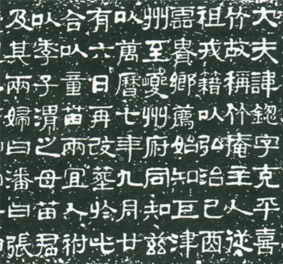 大夫諱鏓字克平喜
竹故稱竹庵主人
祖戎籍以弘治己酉
雲貴鄉薦始知巨津
州至夔州府同知茲
以萬曆七年九月廿
有六日再改葬於此
合以童苗兩宜人祔
以季子渭之母苗君
及其兩婦曰潘曰張